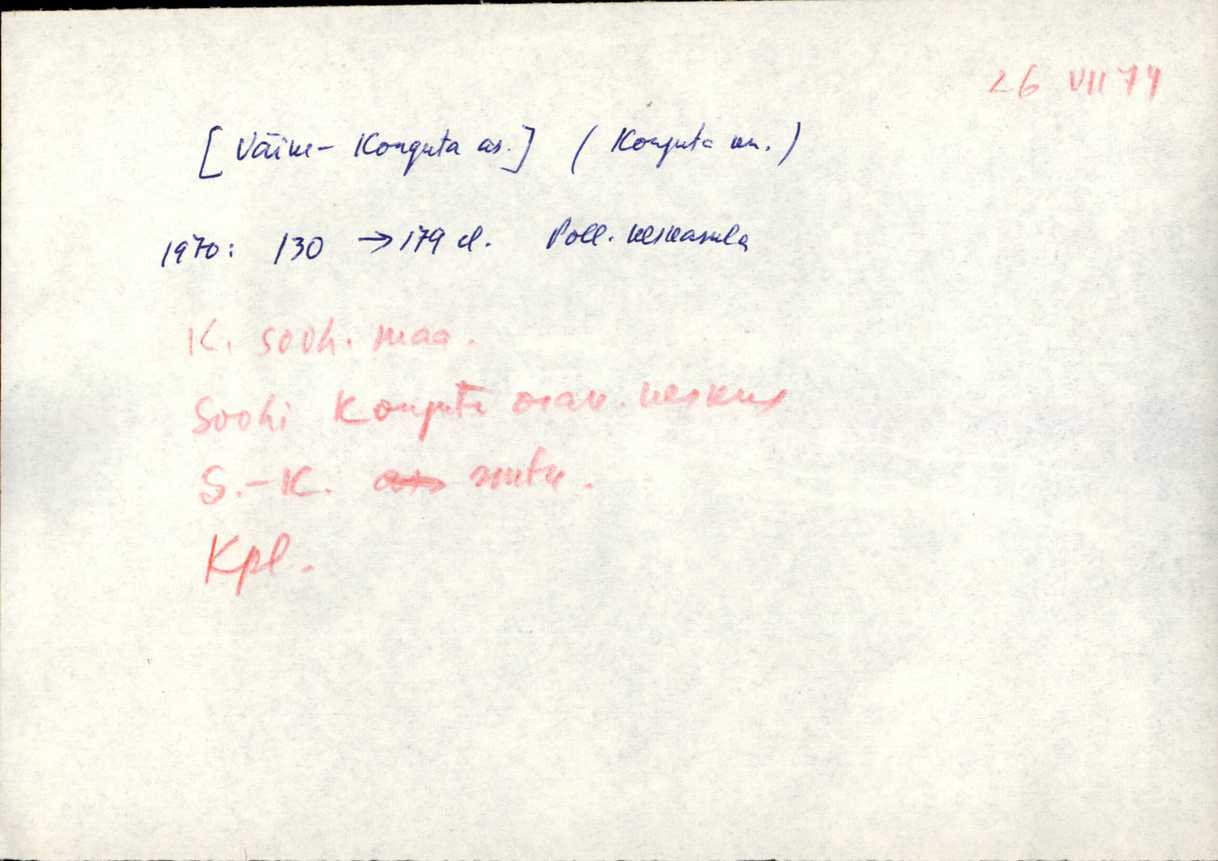 26 VII 74
[Väike-Konguta as.] (Konguta kn.)
1970: 130 → 179 el. Põll. keskasula
K. sovh. maa.
Sovhi Konguta osak. keskus
S.-K.
Kpl.